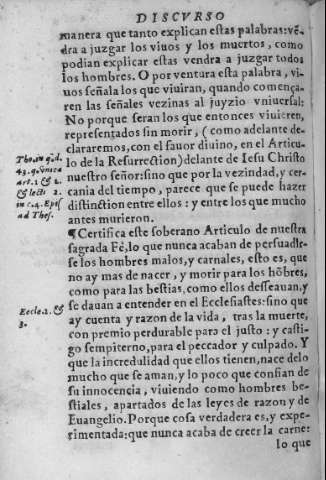 DISCVRSO
manera que tanto explican estas palabras: vẽ-
dra a juzgar los viuos y los muertos, como
podian explicar estas vendra a juzgar todos
los hombres. O por ventura esta palabra, vi-
uos señala los que viuiran, quando començа-
ren las señales vezinas al juyzio vniuersal:
No porque seran los que entonces viuieren,
representados sin morir, (como adelante de-
clararemos, con el fauor diuino, en el Articu-
lo de la Resurrection) delante de Iesu Christo
nuestro señor: sino que por la vezindad, y cer-
cania del tiempo, parece que se puede hazer
distinction entre ellos: y entre los que mucho
antes murieron.
¶ Certifica este soberano Articulo de nuestra
sagrada Fè, lo que nunca acaban de persuadir-
se los hombres malos, y carnales, esto es, que
no ay mas de nacer, y morir para los hõbres,
como para las bestias, como ellos dessean, y
se dauan a entender en el Ecclesiastes: sino que
ay cuenta y razon de la vida, tras la muerte,
con premio perdurable para el justo: y casti-
go sempiterno, para el peccador y culpado. Y
que la incredulidad que ellos tienen, nace delo
mucho que se aman, y lo poco que confian de
su innocencia, viuiendo como hombres be-
stiales, apartados de las leyes de razon y de
Euangelio. Porque cosa verdadera es, y expe-
rimentada: que nunca acaba de creer la carne:
lo que
Tho. in q. d.
43. q. vnica
art. 1 & 2.
& lect. 2.
in c. 4. Epist.
ad Thes.
Eccle. 2. &
3.